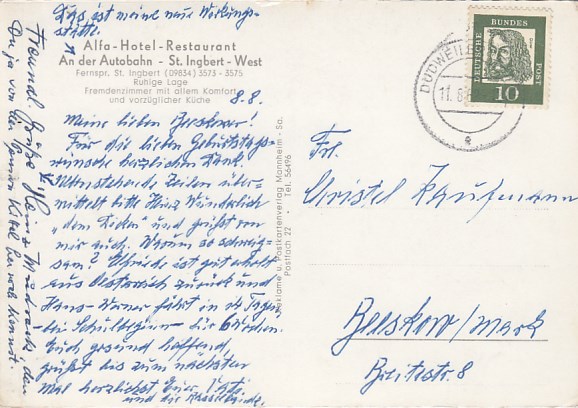 Das ist meine neue Wirkungs-
stätte.
Alfa-Hotel-Restaurant
An der Autobahn - St. Ingbert - West
Fernspr. St. Ingbert (09834) 3573 - 3575
Ruhige Lage
Fremdenzimmer mit allem Komfort
und vorzüglicher Küche
8.8.
Meine lieben Beeskower!
Für die lieben Geburtstags-
wünsche herzlichen Dank.
Untenstehende Zeilen über-
mittelt bitte Heinz Wunderlich
"dem Dicken" und grüßt von
mir auch. Warum so schweig-
sam? Elfriede ist gut erholt
aus Österreich zurück und
Hans-Werner fährt in 14 Tagen
bei Schulbeginn
Euch gesund hoffend
grüßt bis zum nächsten
Mal herzlichst Euer
und die
Freund Heinz den
Du ja von der her noch kennst.
Reklame u. Postkartenverlag Mannheim - Sa.
Postfach 22 - Tel. 56496
DUDWEILER
11. 8.
e
DEUTSCHE BUNDES POST
10
Frl.
Christel Kaufmann
Beeskow/Mark
Breitestr. 8